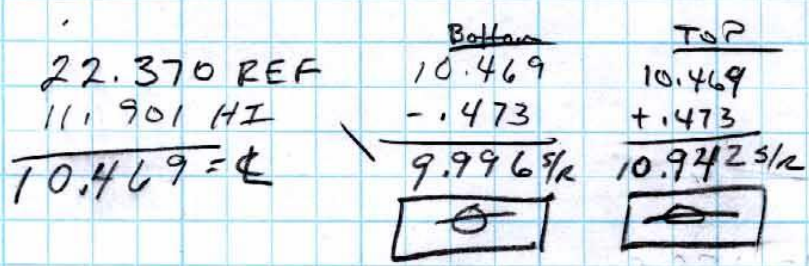 22.370 REF
11.901 HI
10.469 = ℄
Bottom
10.469
- .473
9.996 S/R
TOP
10.469
+.473
10.942 S/R